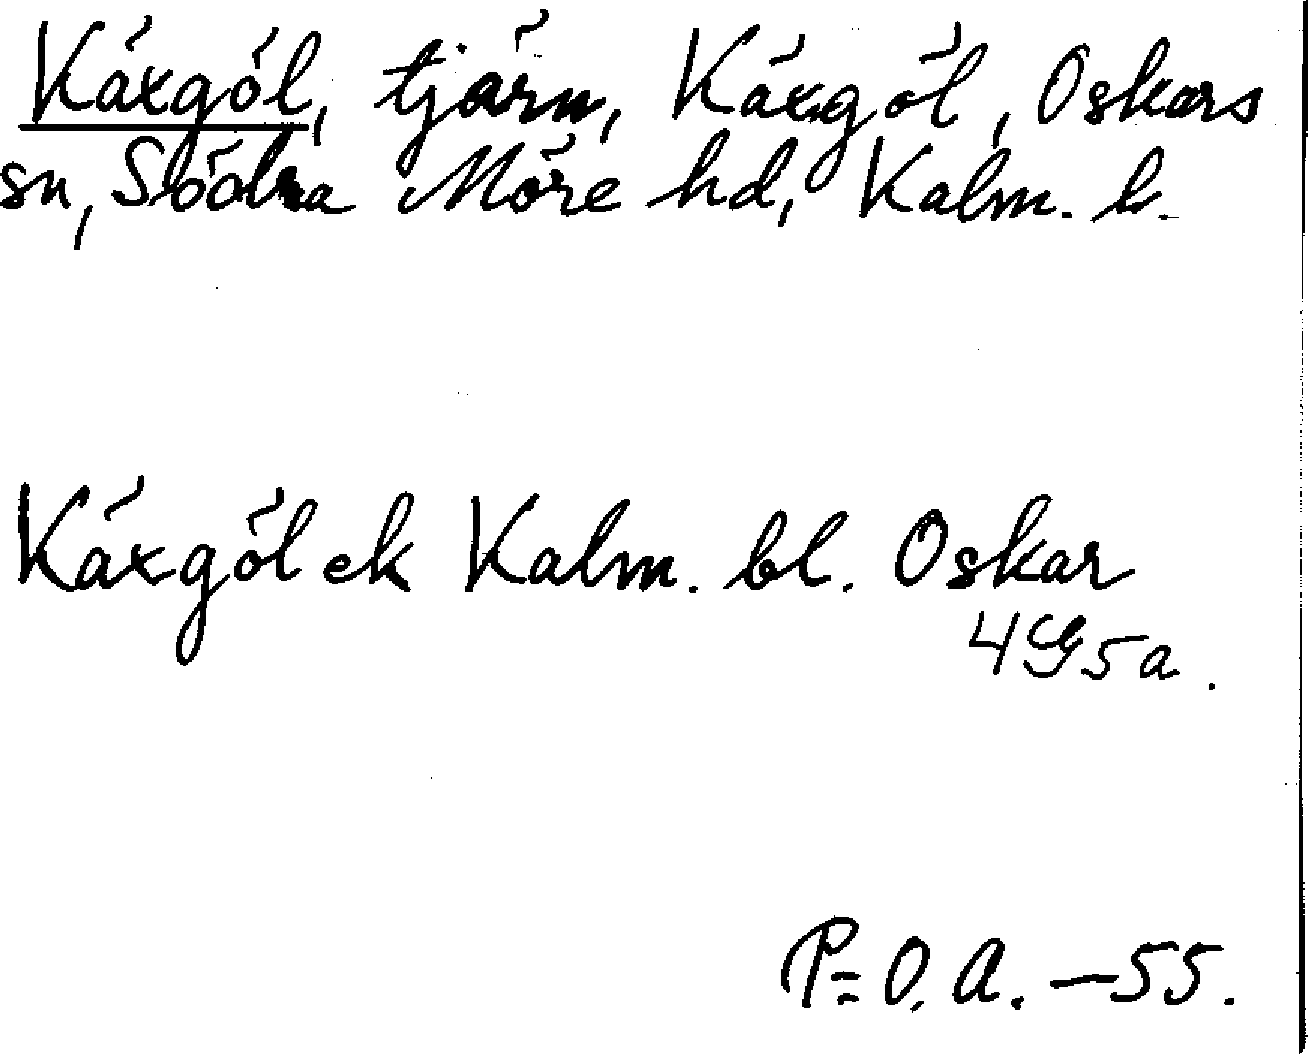 Käxgöl, tjärn, Käxgöl, Oskars
sn, Södra Möre hd, Kalm. l.
Käxgöl ek Kalm. bl. Oskar
4G5a.
P=O. A. - 55.